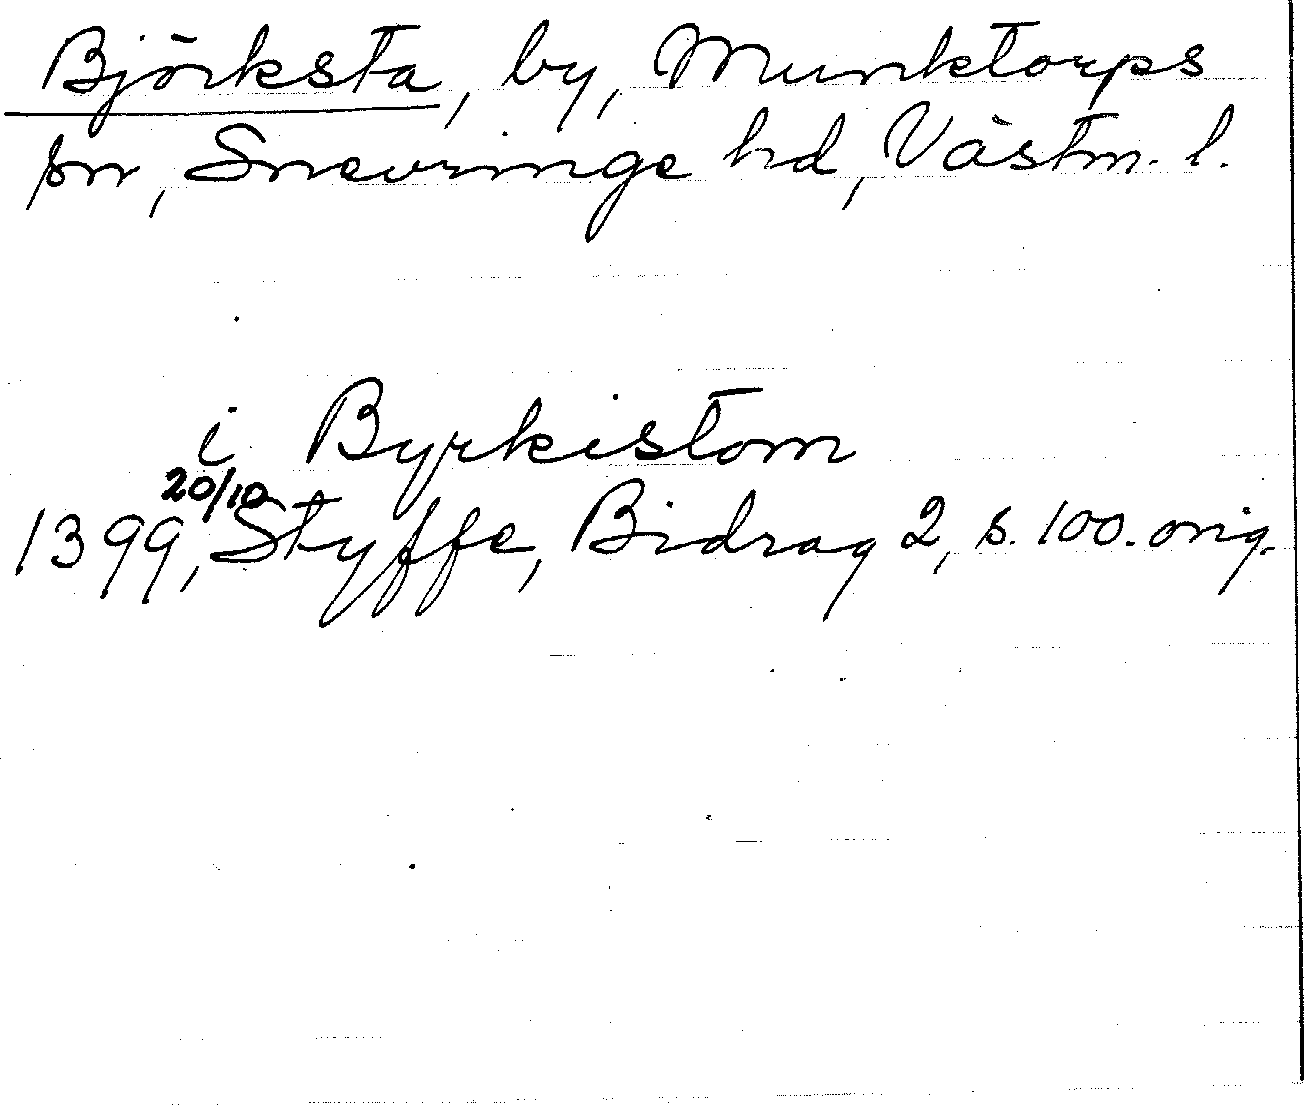 Björksta, by, Munktorps
sn, Snevringe hd, Västm. l.
i Byrkistom
20/10
1399, Styffe, Bidrag 2, s. 100. orig.